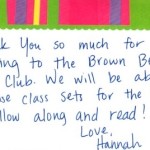 k You so much for
ing to the Brown Be
Club. We will be ab
se class sets for the
llow along and read!
Love,
Hannah